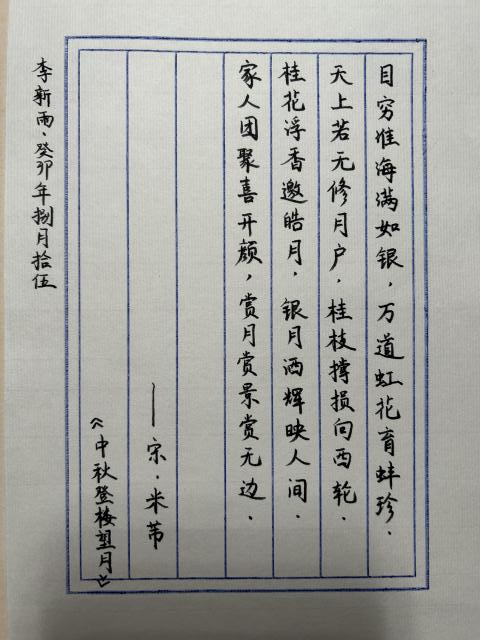 目穷淮海满如银，万道虹花育蚌珍．
天上若无修月户．桂枝撑损向西轮．
桂花浮香邀皓月．银月洒辉映人间．
家人团聚喜开颜，赏月赏景赏无边．
——宋．米芾
《中秋登楼望月》
李新雨．癸卯年捌月拾伍